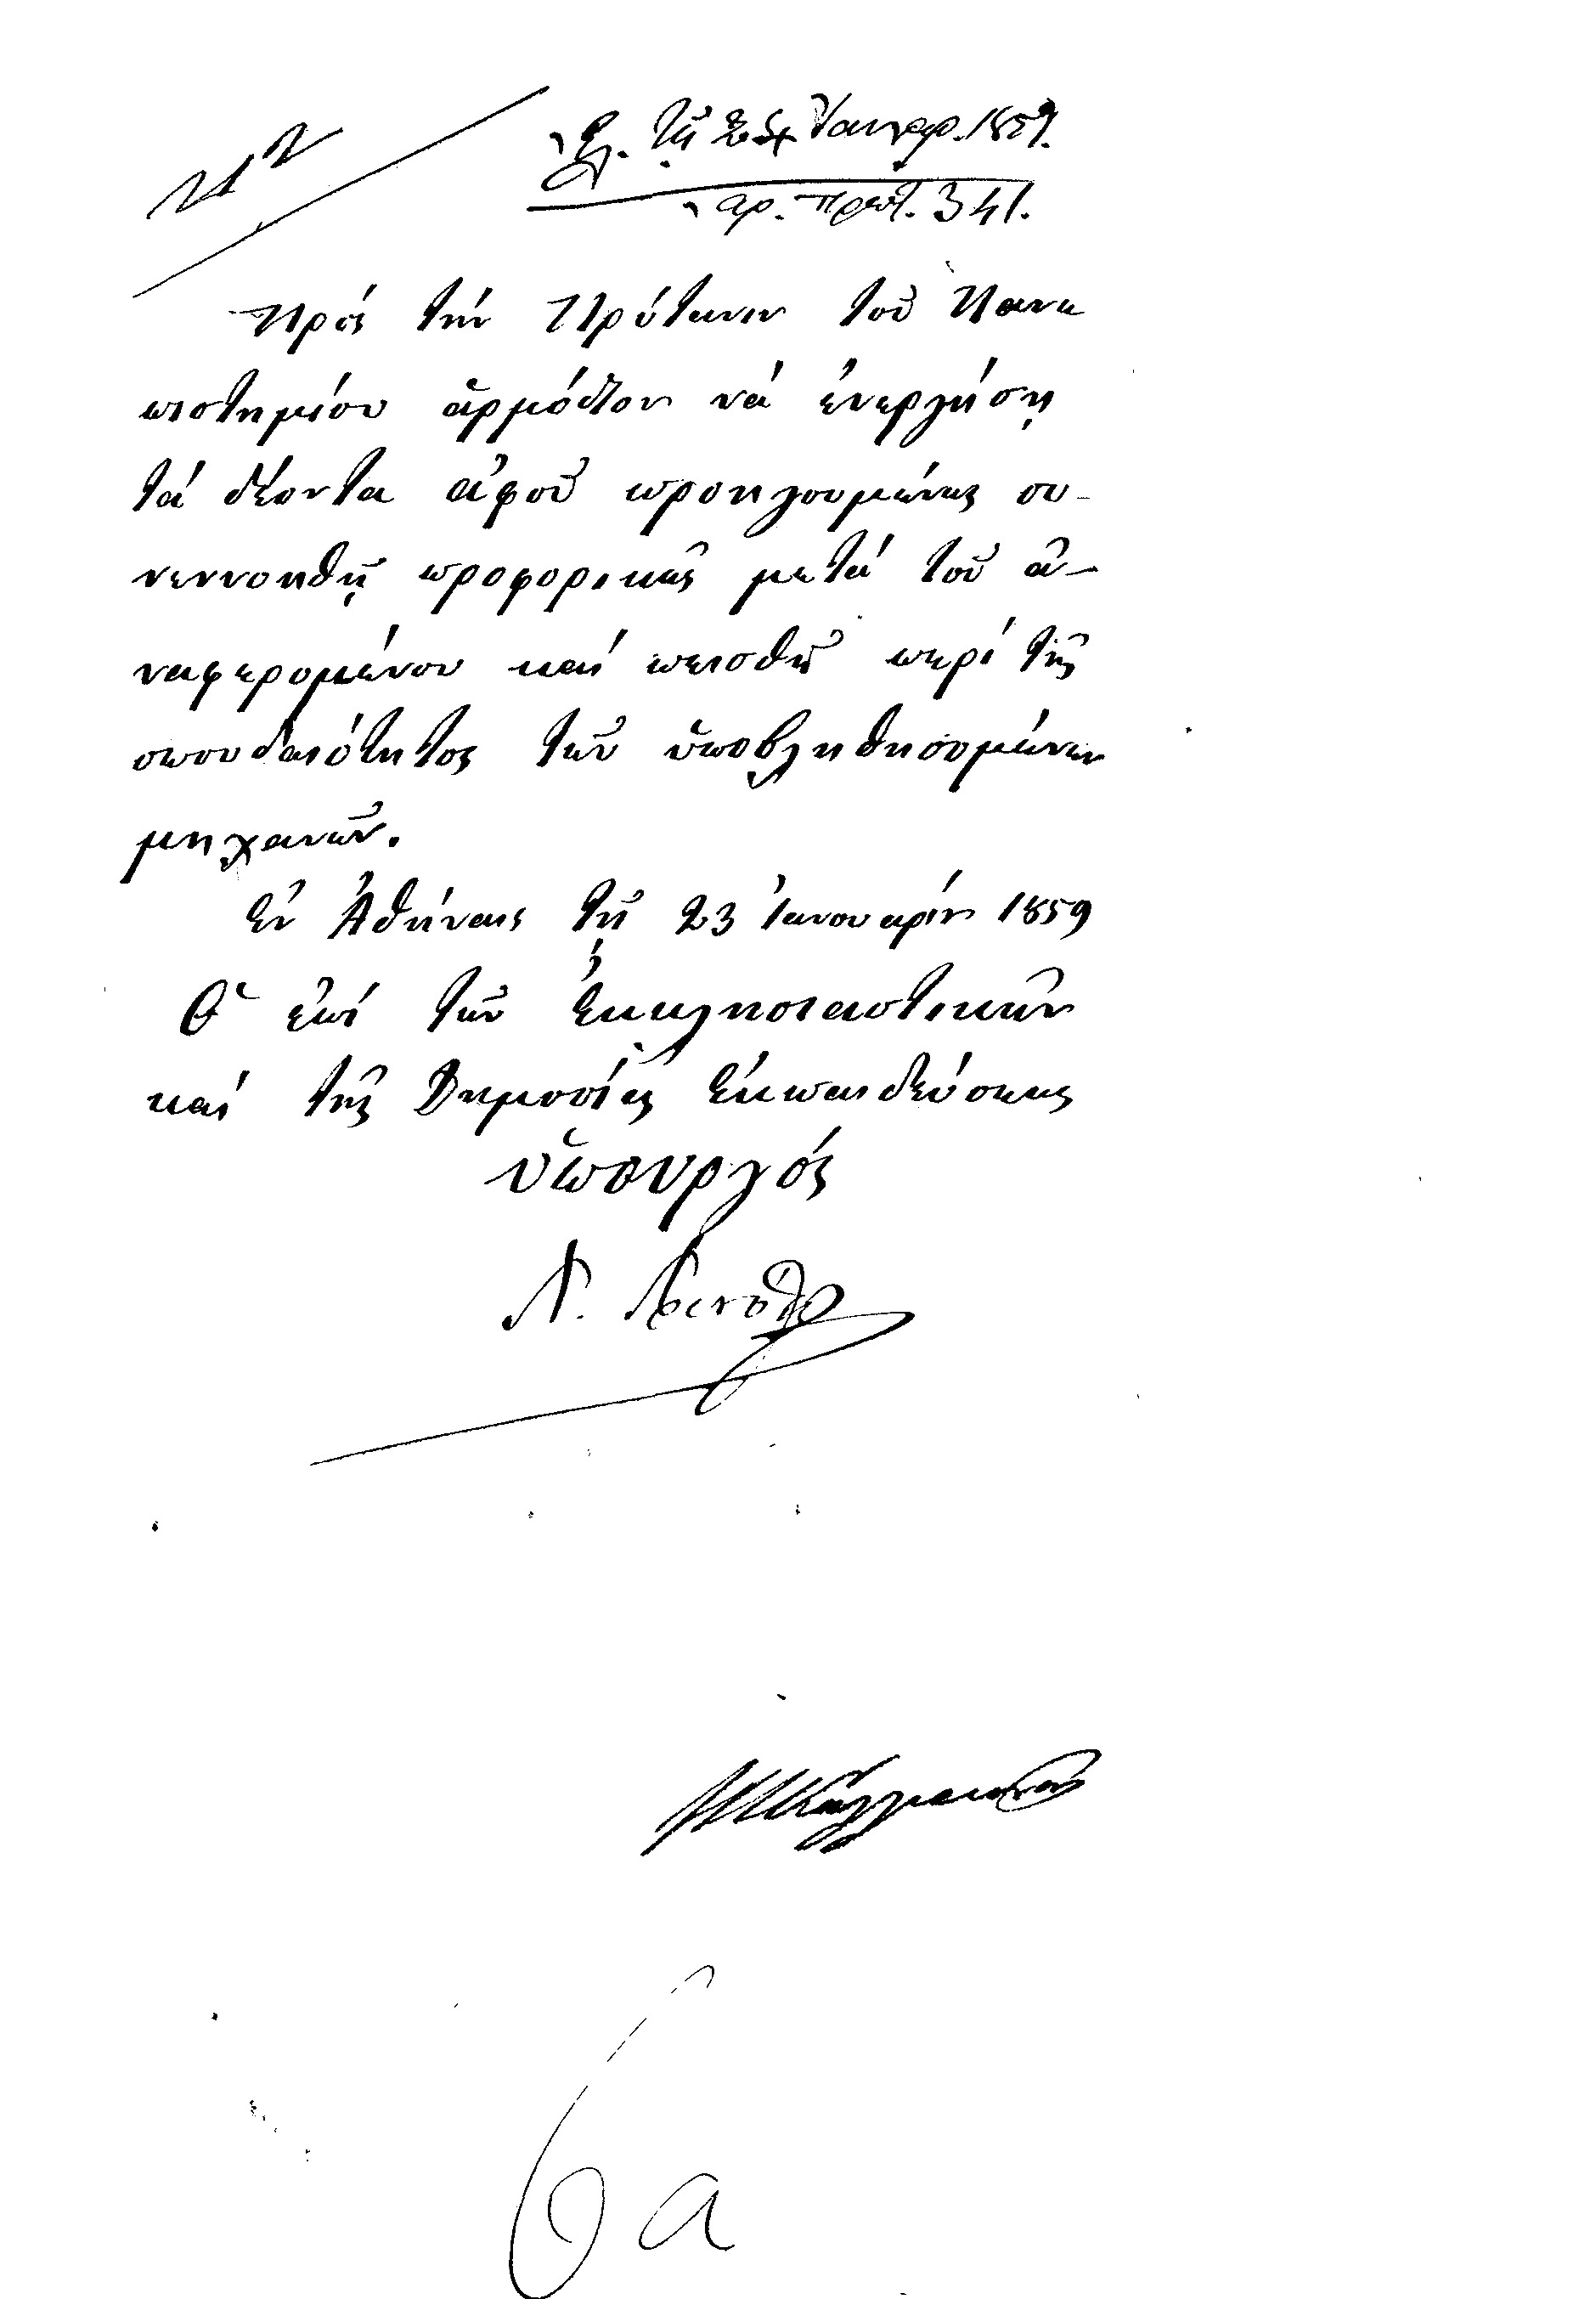 τῇ 24 Ἰανουαρ. 1859.
ἀρ. πρωτ. 341.
Πρός τήν Πρύτανιν τοῦ Πανε
πιστημίου ἁρμόδιον νά ἐνεργήσῃ
τά δέοντα ἀφοῦ προηγουμένως συ-
νεννοηθῇ προφορικῶς μετά τοῦ ἀ-
ναφερομένου καί πεισθῇ περί τῆς
σπουδαιότητος τῶν ὑποβληθησομένων
μηχανῶν.
Ἐν Ἀθήναις τῇ 23 Ἰανουαρίου 1859
Ὁ ἐπί τῶν Ἐκκλησιαστικῶν
καί τῆς Δημοσίας Ἐκπαιδεύσεως
ὑπουργός
6 α